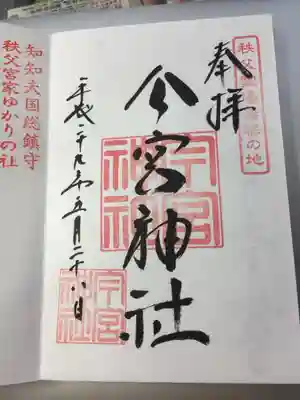 秩父霊場発祥の地
奉拝
今宮神社
今宮神社
平成二十九年五月二十八日
今宮神社
知知夫国総鎮守
秩父宮家ゆかりの社